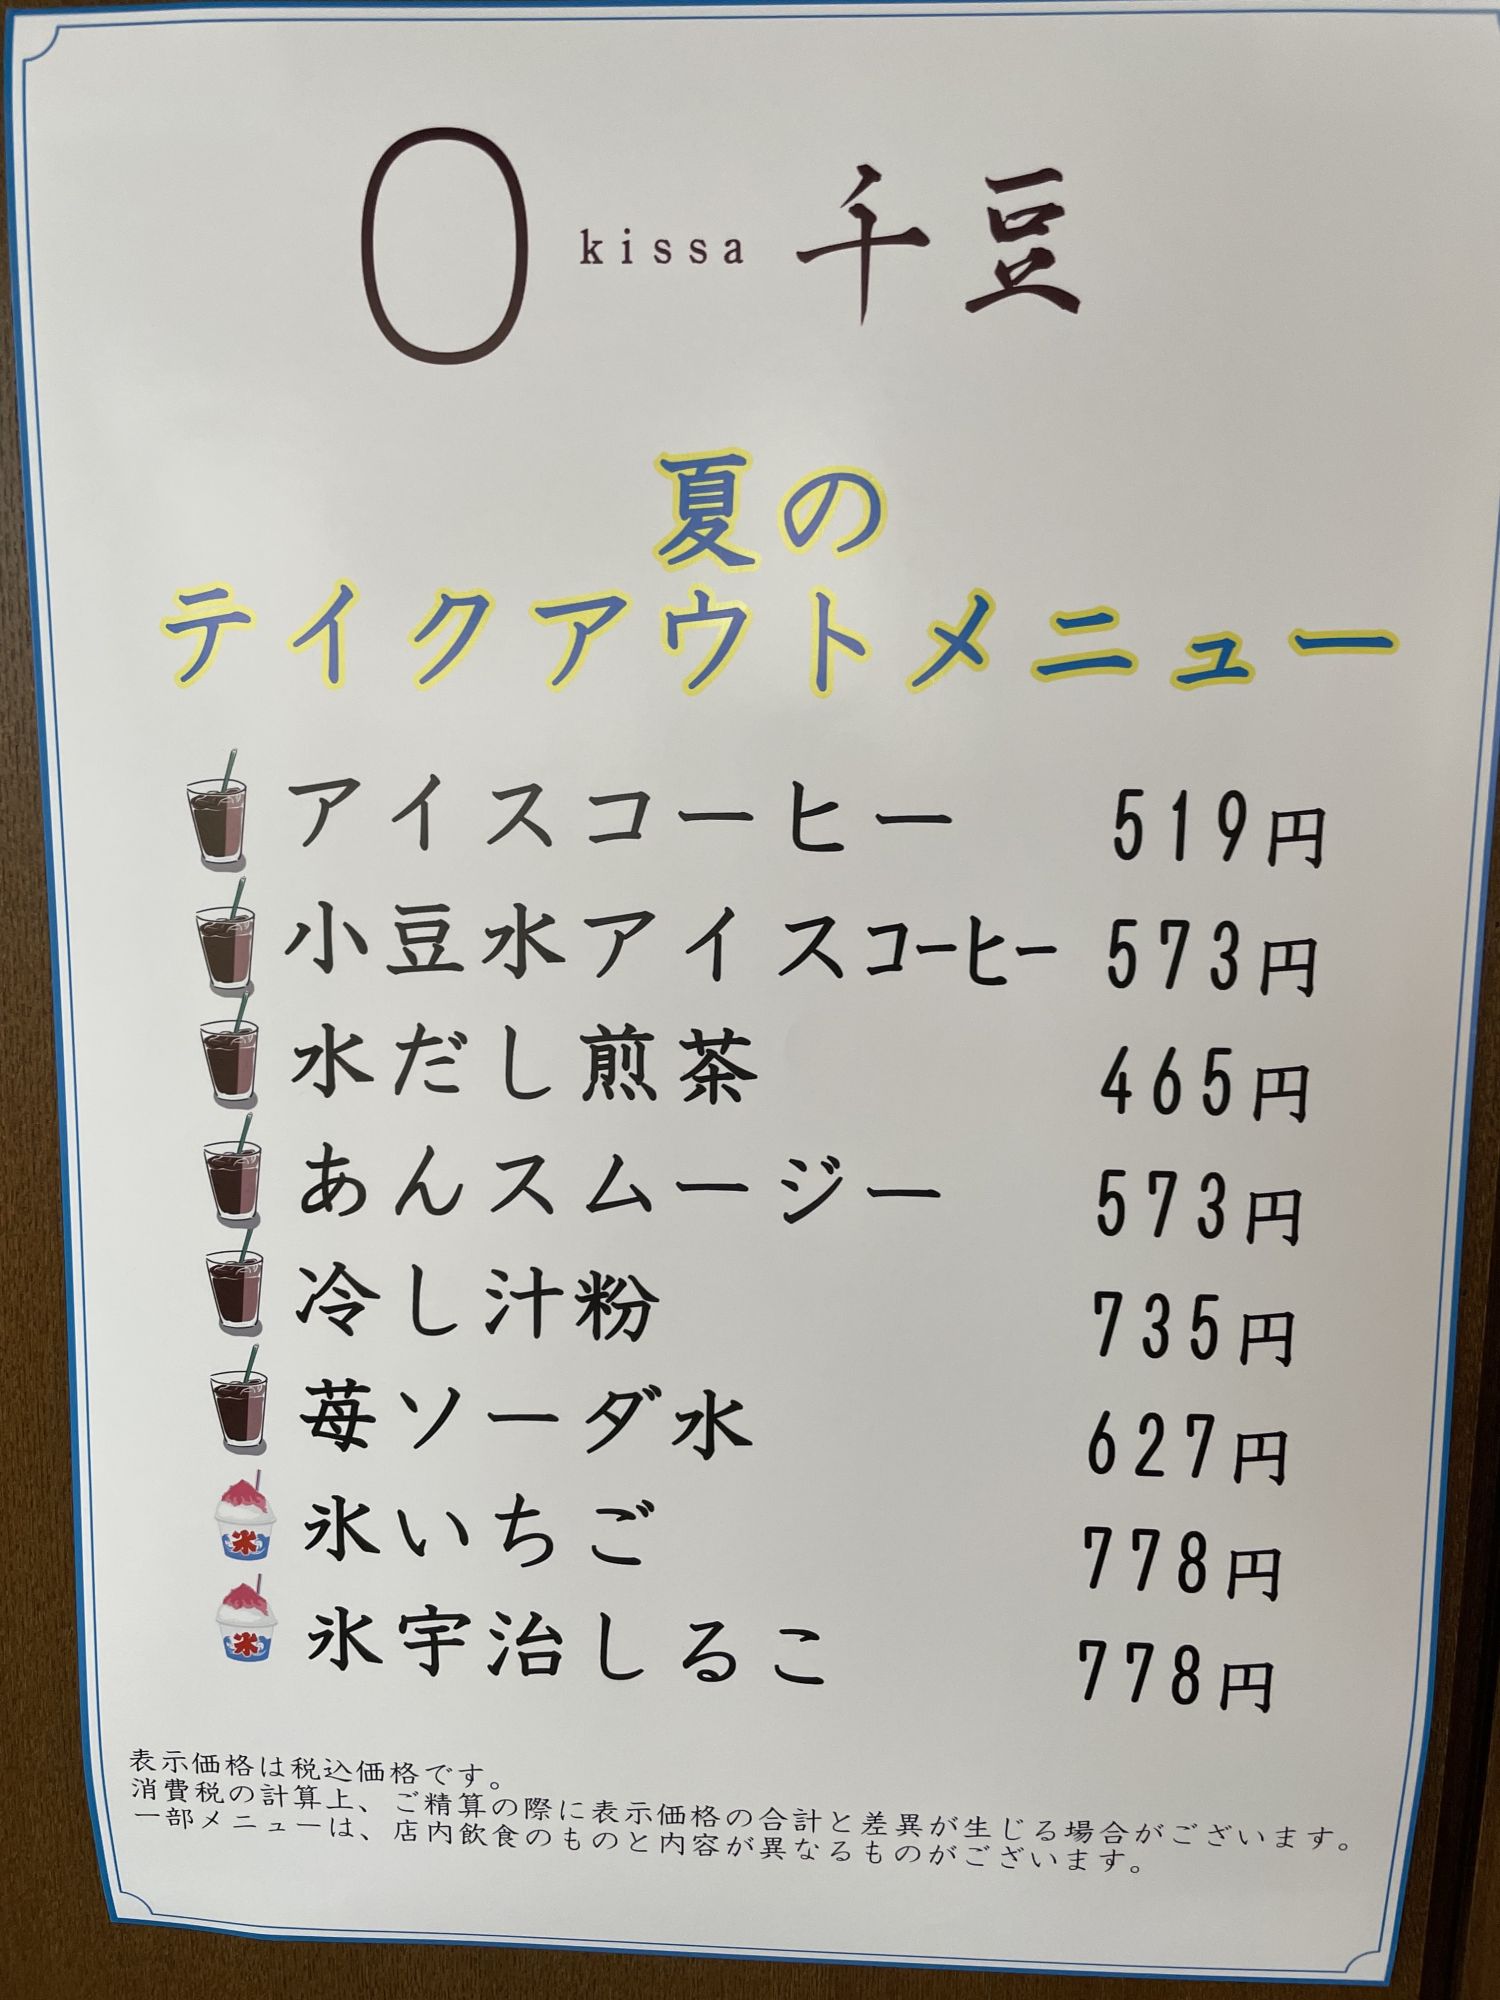 O kissa 千豆
夏の
テイクアウトメニュー
アイスコーヒー 519円
小豆水アイスコーヒー 573円
水だし煎茶 465円
あんスムージー 573円
冷し汁粉 735円
苺ソーダ水 627円
氷 氷いちご 778円
氷 氷宇治しるこ 778円
表示価格は税込価格です。
消費税の計算上、ご精算の際に表示価格の合計と差異が生じる場合がございます。
一部メニューは、店内飲食のものと内容が異なるものがございます。